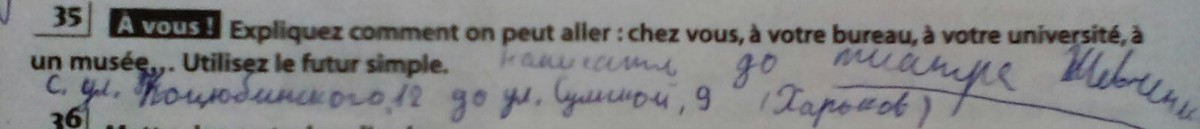 35 À vous ! Expliquez comment on peut aller : chez vous, à votre bureau, à votre université, à
un musée... Utilisez le futur simple. написать до театра Шевченк
с. ул. Коцюбинского, 12 до ул. Сумской, 9 (Харьков)
36